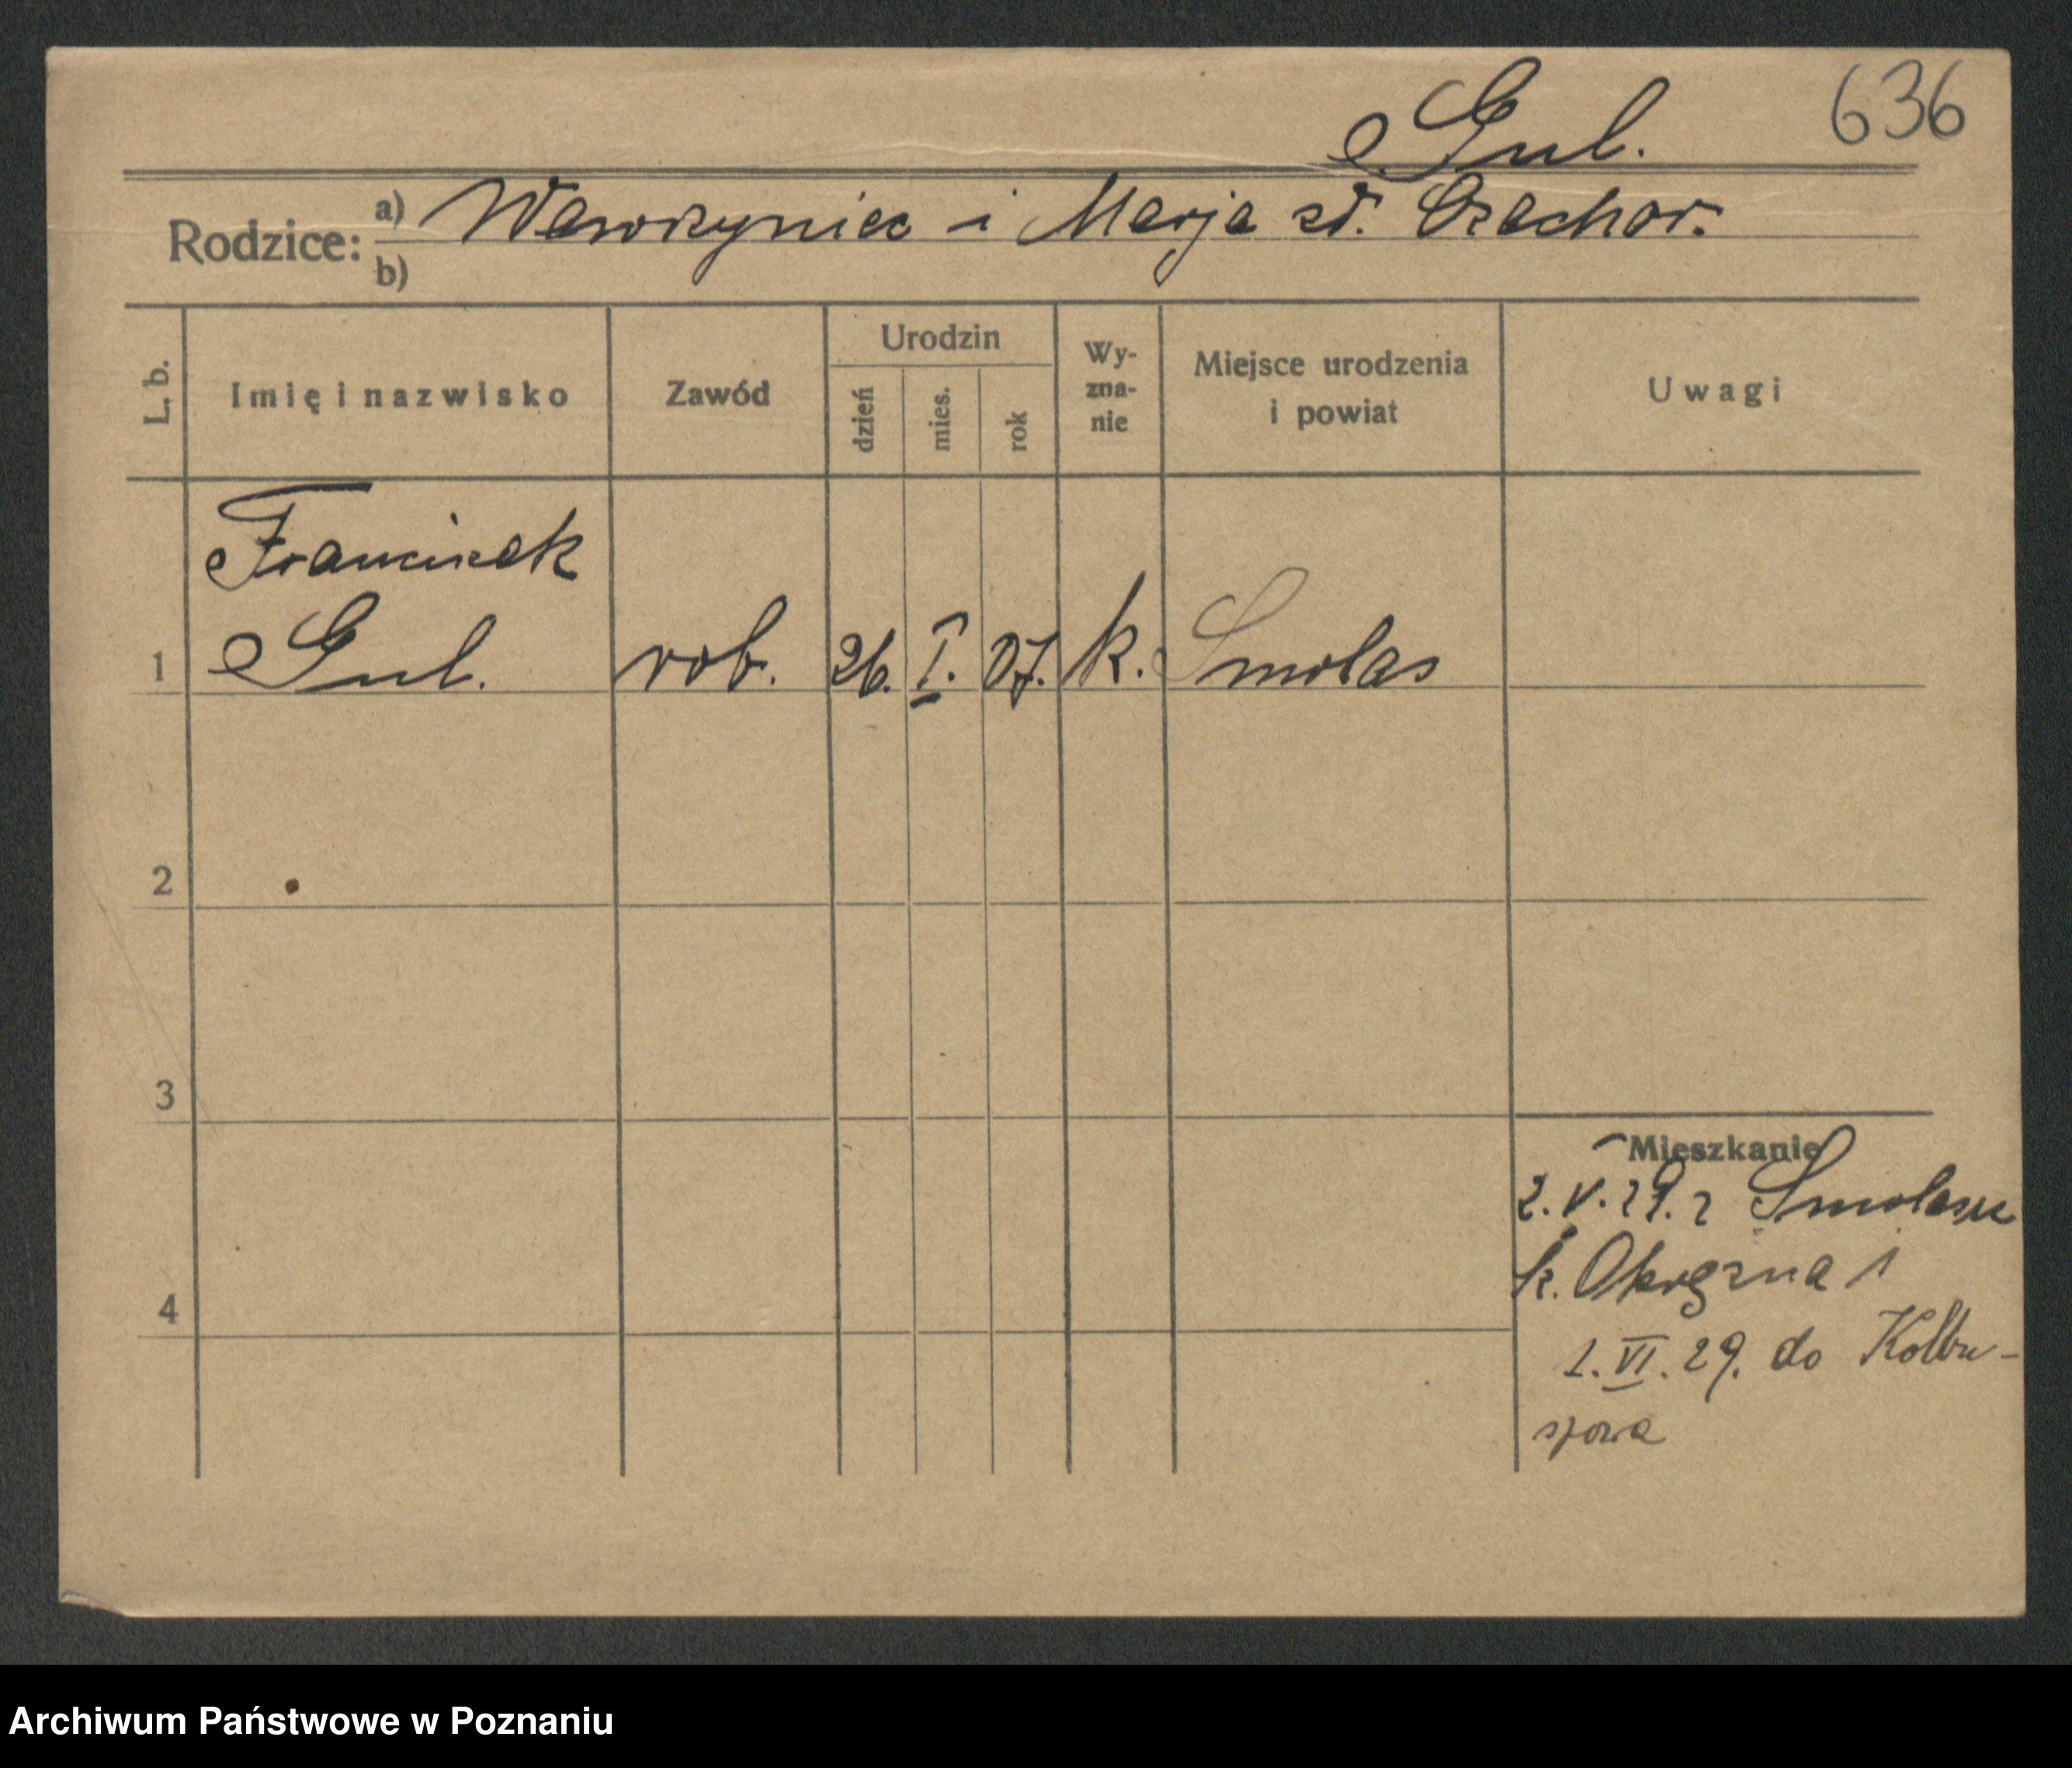 636
Gul.
Rodzice: a) Wawrzyniec i Marja zd. Czachor.
b)
L. b. Imię i nazwisko Zawód Urodzin dzień mies. rok Wy-zna-nie Miejsce urodzenia i powiat Uwagi
Franciszek
1 Gul. rob. 26. I. 07. k. Smolas
2
3
Mieszkanie
2. V. 29. z
k. Okrężna 1
4
1. VI. 29. do Kolbu-
szowa
Archiwum Państwowe w Poznaniu